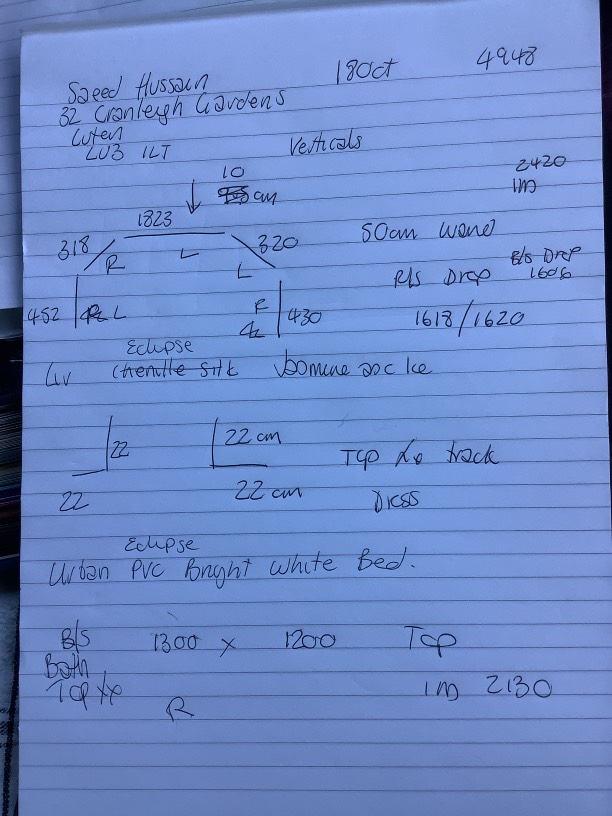 Saeed Hussain 18 Oct 4948
32 Cranleigh Gardens
Luton
LU3 1LT Verticals
10 2420
cm 1m
1823
318 R L L 320 50cm wand
R/s Drop B/s Drop 1606
452 L R 430 1618/1620
Eclipse
Chenille Silk Ice
22 22 cm
Top fix track
22 22 cm Dress
Eclipse
Urban PVC Bright White Bed.
B/S 1300 x 1200 Top
Both
Top fix 1m 2130
R